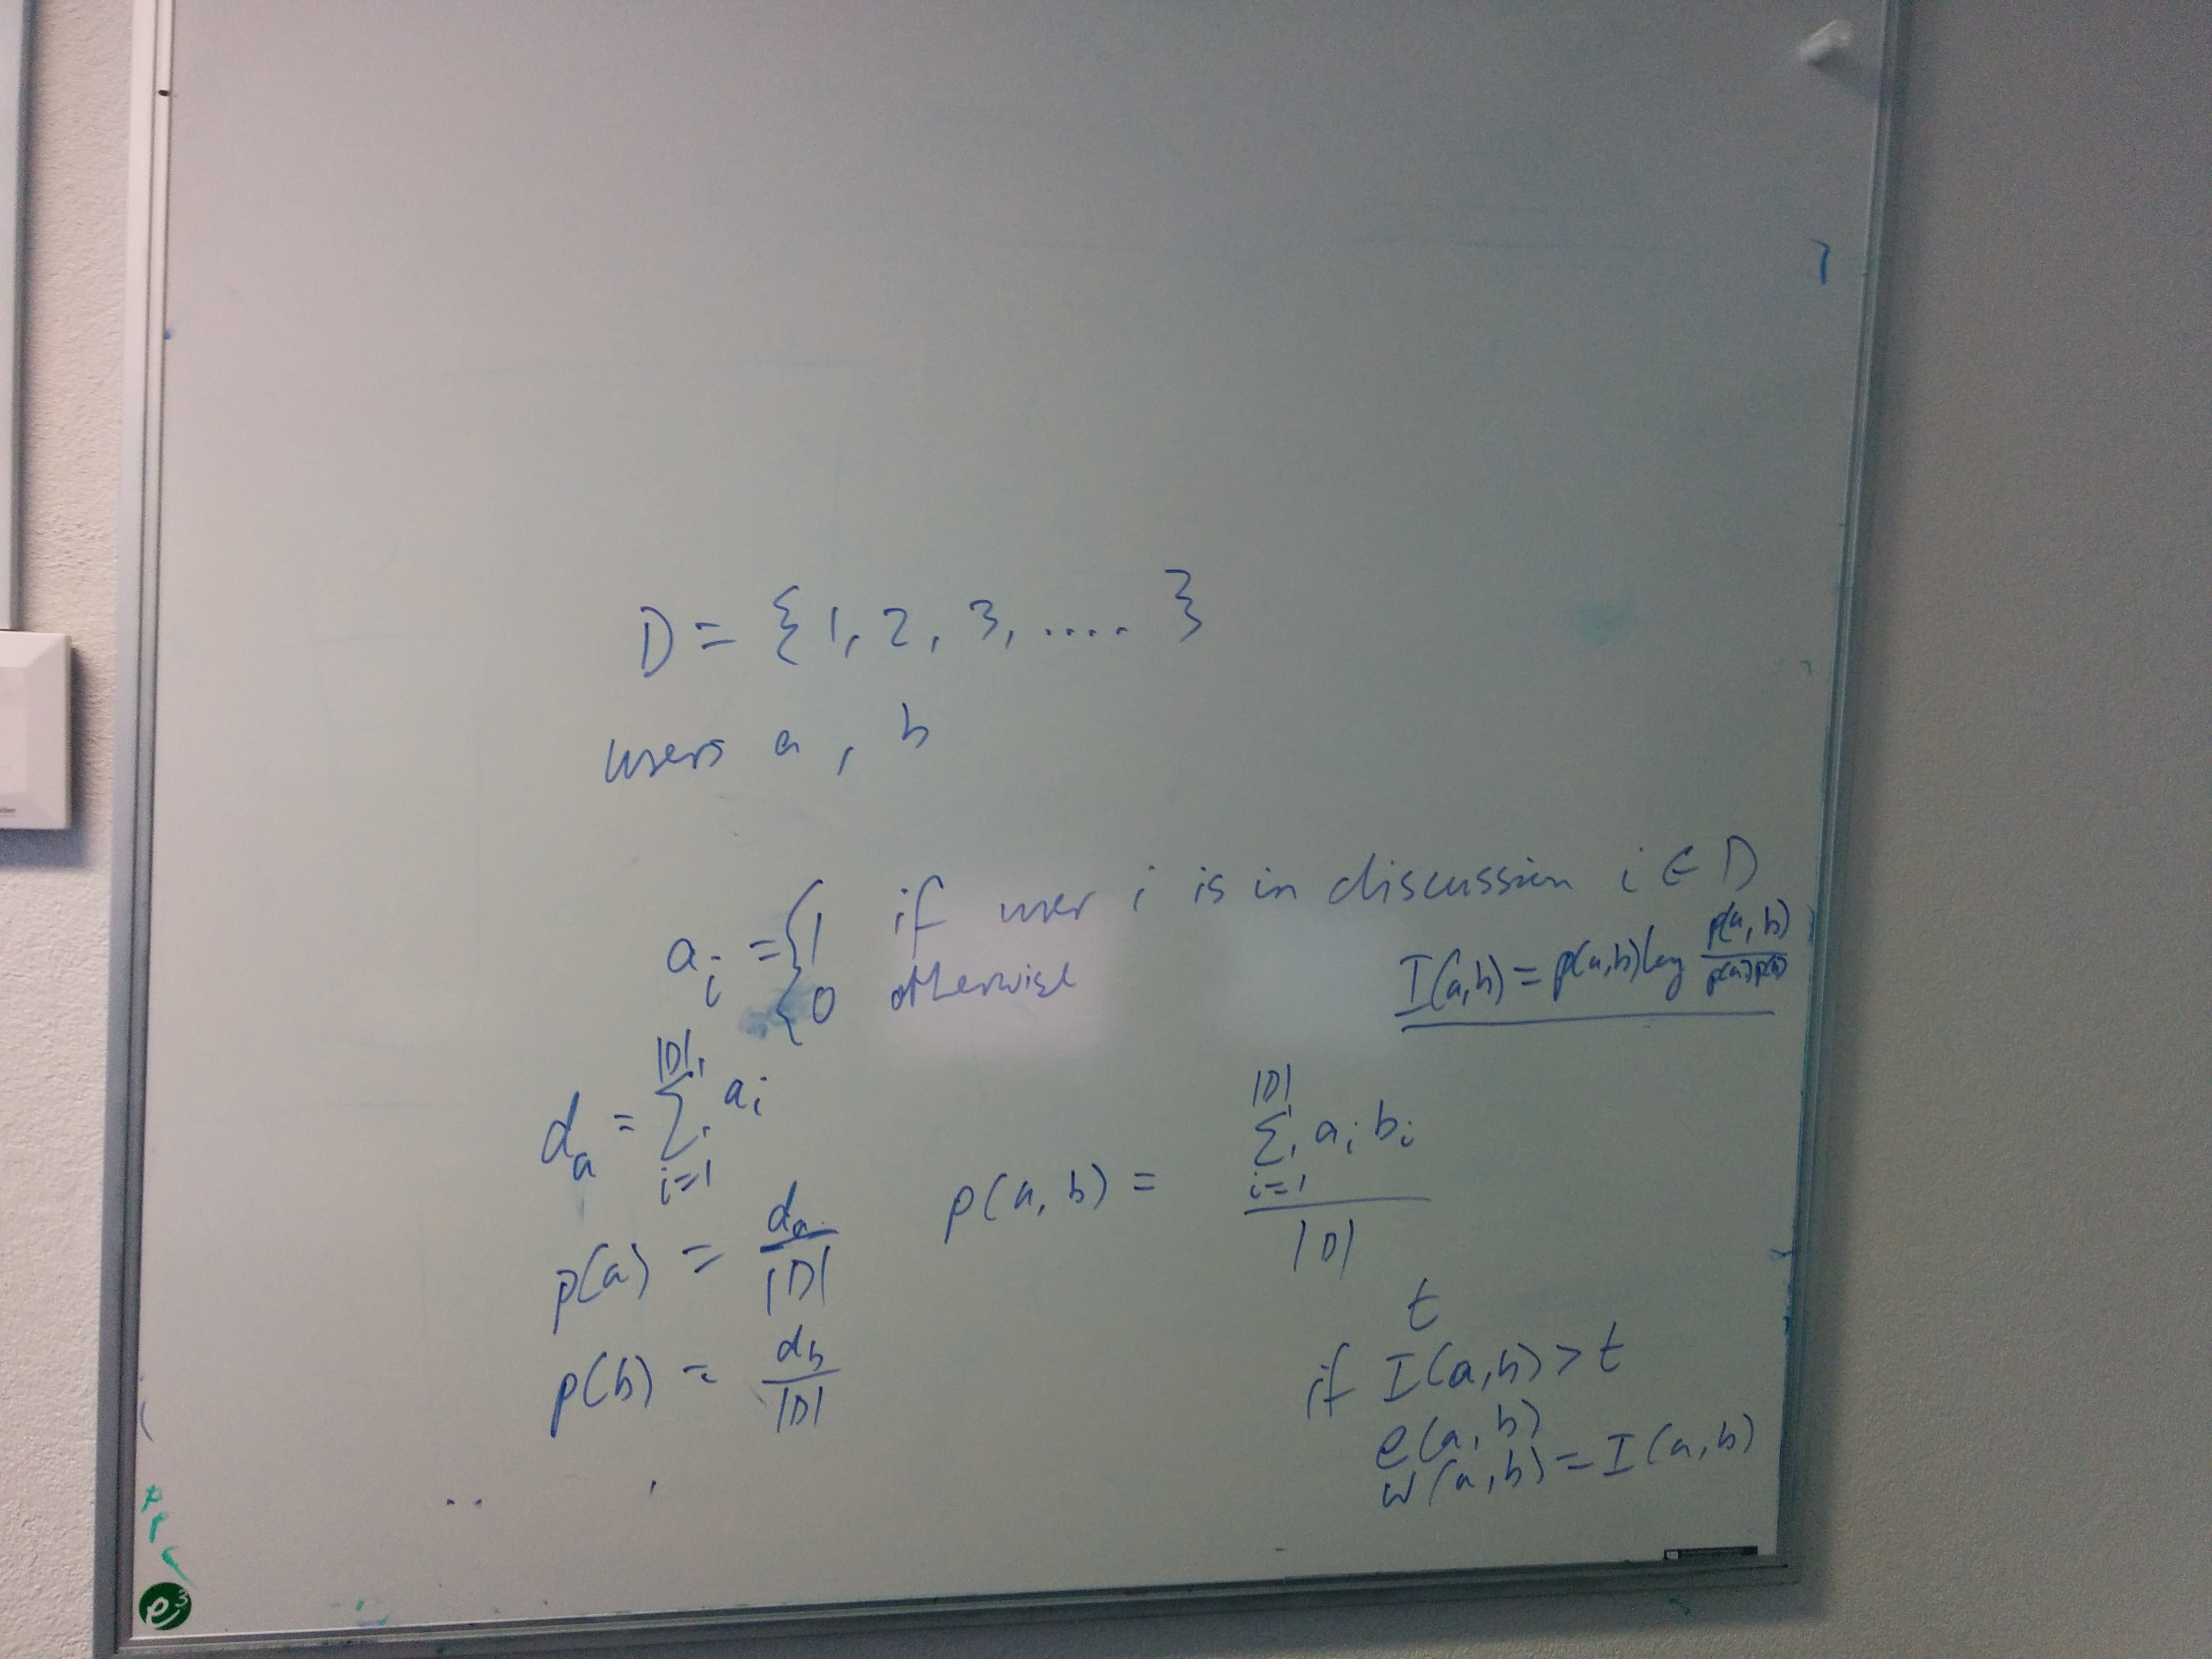 D = {1, 2, 3, .... }
users a, b
a_i = { 1 if user i is in discussion i ∈ D
0 otherwise
I(a,b) = p(a,b) log p(a,b) / p(a)p(b)
d_a = ∑_{i=1}^{|D|} a_i
p(a,b) = ∑_{i=1}^{|D|} a_i b_i / |D|
p(a) = d_a / |D|
p(b) = d_b / |D|
t
if I(a,b) > t
e(a,b)
w(a,b) = I(a,b)
e³